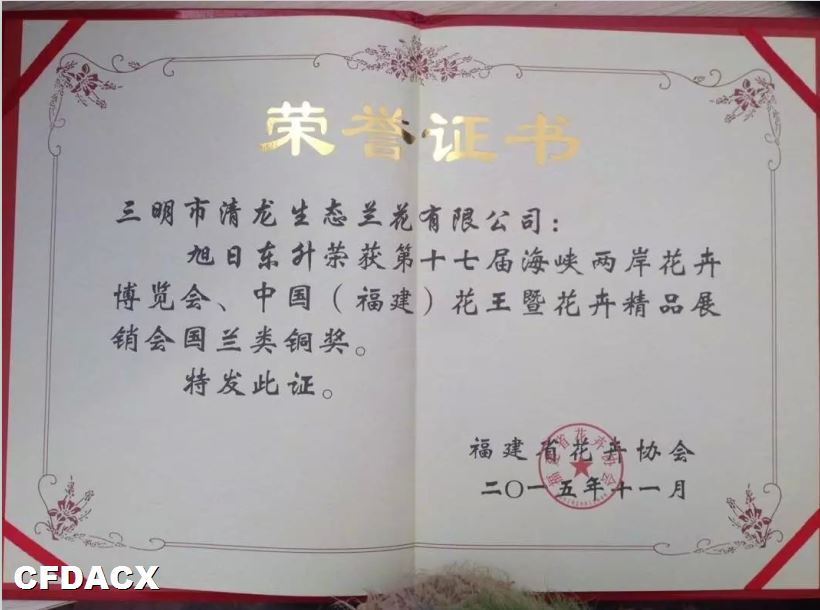 荣誉证书
三明市清龙生态兰花有限公司：
旭日东升荣获第十七届海峡两岸花卉
博览会、中国（福建）花王暨花卉精品展
销会国兰类铜奖。
特发此证。
福建省花卉协会
二〇一五年十一月
福建省花卉协会
CFDACX